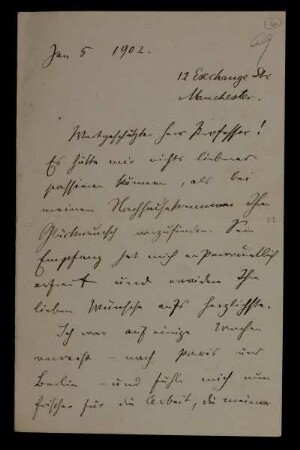 Jan 5 1902.
12 Exchange Str
Manchester.
Wertgeschätzter Herr Professor!
Es hätte mir nichts lieberes
passieren können, als bei
meinem Nachhausekommen Ihren
Glückwunsch vorzufinden. Sein
Empfang hat mich außerordentlich
erfreut und erwidere Ihre
lieben Wünsche aufs herzlichste.
Ich war auf einige Wochen
verreist – nach Paris und
Berlin – und fühle mich nun
frischer für die Arbeit, die meiner